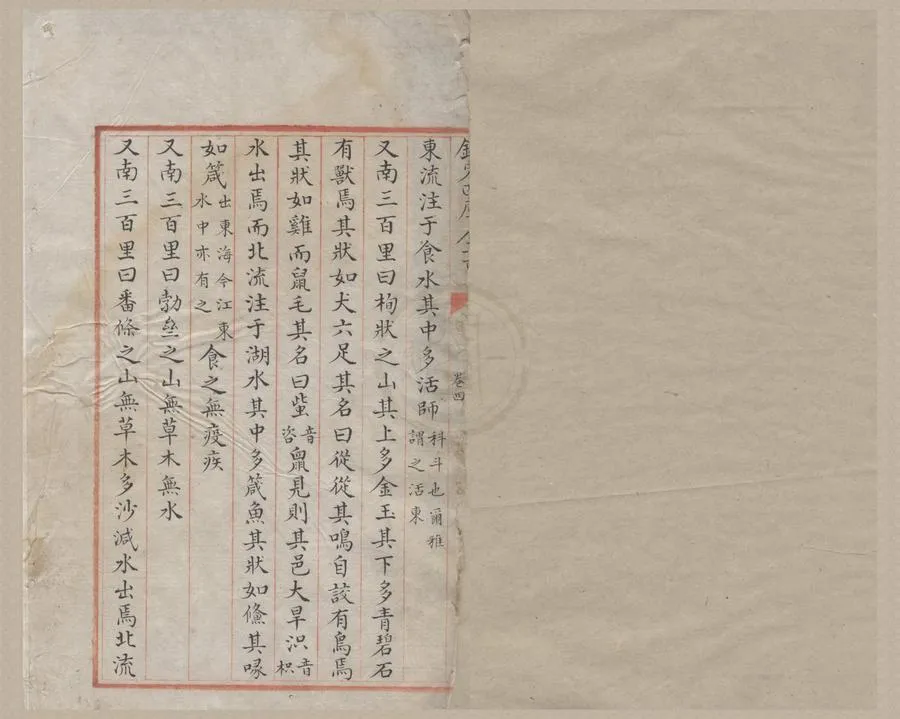 卷四
東流注于食水其中多活師科斗也爾雅謂之活東
又南三百里曰栒狀之山其上多金玉其下多青碧石
有獸焉其狀如犬六足其名曰從從其鳴自詨有鳥焉
其狀如雞而鼠毛其名曰䖪音咨鼠見則其邑大旱𣲵音枳
水出焉而北流注于湖水其中多箴魚其狀如儵其喙
如箴出東海今江東水中亦有之食之無疫疾
又南三百里曰勃亝之山無草木無水
又南三百里曰番條之山無草木多沙減水出焉北流